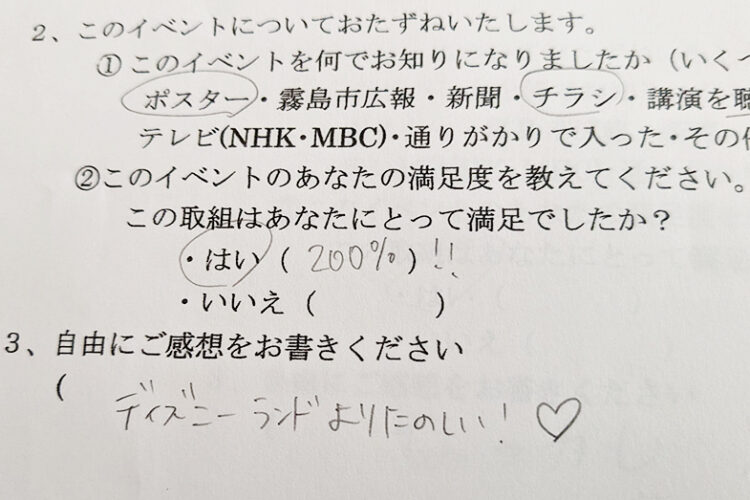 2、このイベントについておたずねいたします。
①このイベントを何でお知りになりましたか(いくつ
ポスター・霧島市広報・新聞・チラシ・講演を聴
テレビ(NHK・MBC)・通りがかりで入った・その他
②このイベントのあなたの満足度を教えてください。
この取組はあなたにとって満足でしたか?
・はい(200%)!!
・いいえ( )
3、自由にご感想をお書きください
(
ディズニーランドよりたのしい!♡